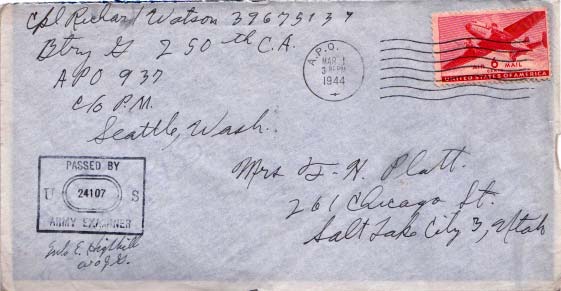 Cpl Richard Watson 39675137
Btry G 250th C.A.
APO 937
C/o P.M.
Seattle, Wash.
A.P.O.
MAR 1
3 PM
1944
6¢
AIR MAIL
UNITED STATES OF AMERICA
Mrs F. H. Platt.
261 Chicago St.
Salt Lake City 3, Utah
PASSED BY
U 24107 S
ARMY EXAMINER
E.